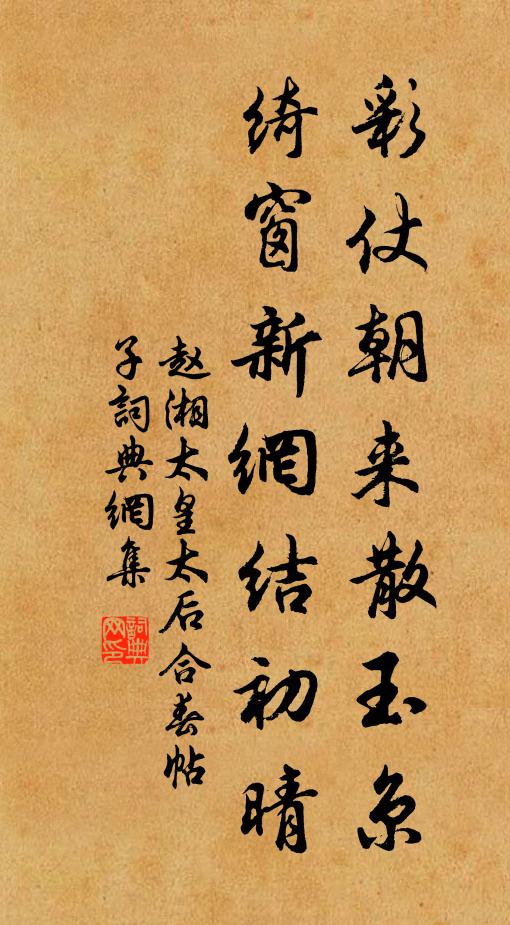 彩仗朝来散玉京
綺窗新網結初晴
赵湘太皇太后合春帖
子詞典網集
詞典网印